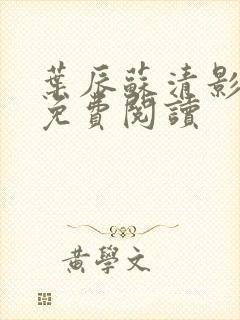 葉辰蘇清影
免費閱讀
黃學文